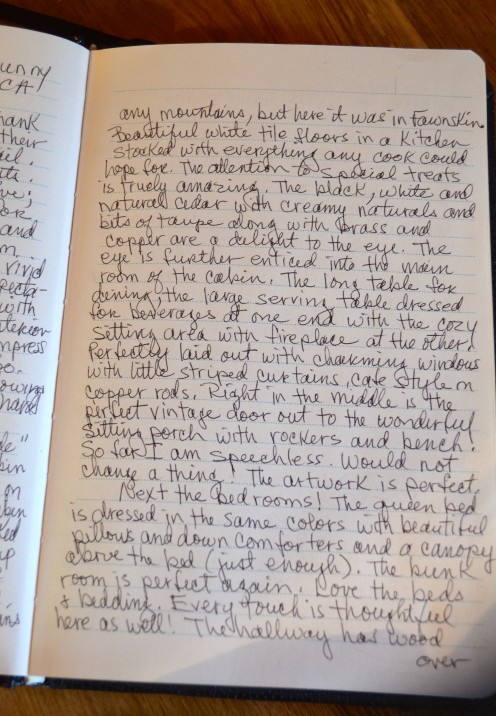 unny
CA
hank
their
ail.
and
m.
rivid
pecta-
with
nterior
mpress
go.
owing
hand
bin
on
up
any mountains, but here it was in Fawnskin.
Beautiful white tile floors in a Kitchen
stocked with everything any cook could
hope for. The attention to special treats
is truely amazing. The black, white and
natural cedar with creamy naturals and
bits of taupe along with brass and
copper are a delight to the eye. The
eye is further enticed into the main
room of the cabin. The long table for
dining, the large serving table dressed
for beverages at one end with the cozy
sitting area with fireplace at the other.
Perfectly laid out with charming windows
with little striped curtains, cafe style on
copper rods. Right in the middle is the
perfect vintage door out to the wonderful
sitting porch with rockers and bench!
So far I am speechless. Would not
change a thing! The artwork is perfect.
Next the Bedrooms! The queen bed
is dressed in the same colors with beautiful
pillows and down comforters and a canopy
above the bed (just enough). The bunk
room is perfect again. Love the beds
& bedding. Every touch is thoughtful
here as well! The hallway has wood
over